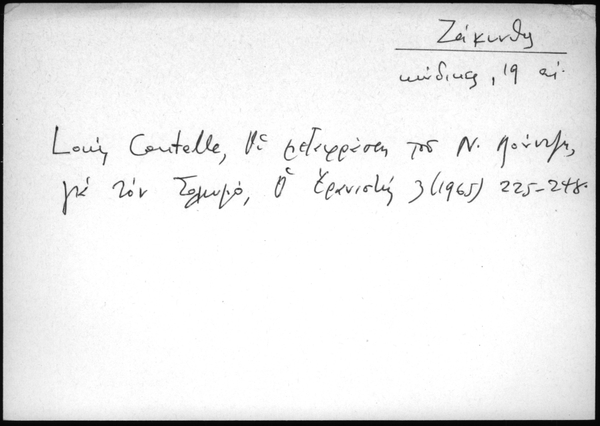 Ζάκυνθος
κώδικες, 19 αἰ.
Louis Coutelle, Οἱ μεταφράσεις τοῦ Ν. Λούντζη,
γιὰ τὸν Σολωμό, Ὁ Ἐρανιστής 3 (1965) 225-248.